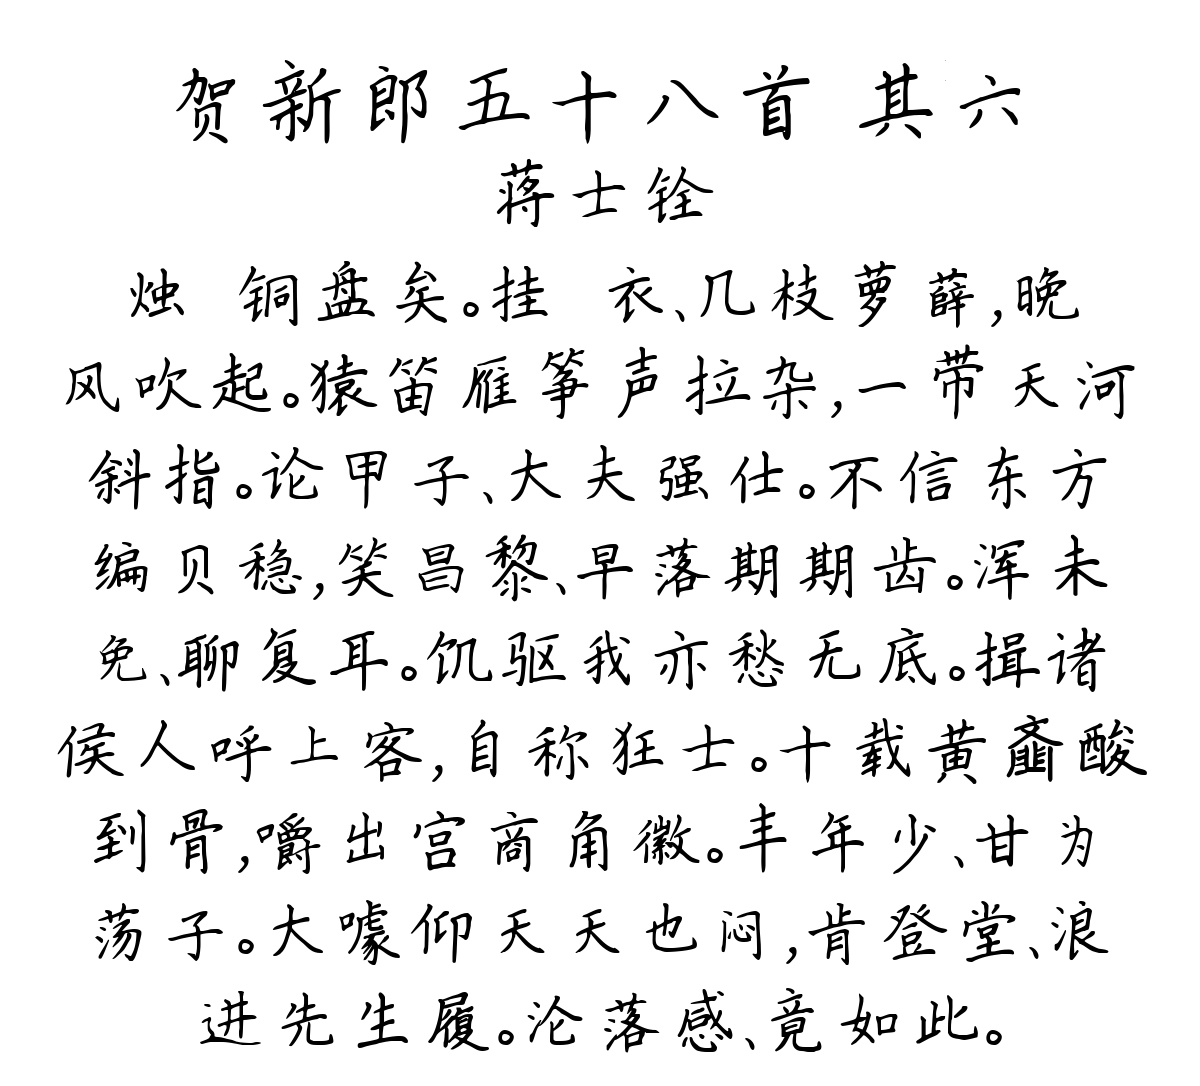 贺新郎五十八首 其六
蒋士铨
烛 铜盘矣。挂 衣、几枝萝薜,晚
风吹起。猿笛雁筝声拉杂,一带天河
斜指。论甲子、大夫强仕。不信东方
编贝稳,笑昌黎、早落期期齿。浑未
免、聊复耳。饥驱我亦愁无底。揖诸
侯人呼上客,自称狂士。十载黄齑酸
到骨,嚼出宫商角徵。丰年少、甘为
荡子。大噱仰天天也闷,肯登堂、浪
进先生履。沦落感、竟如此。